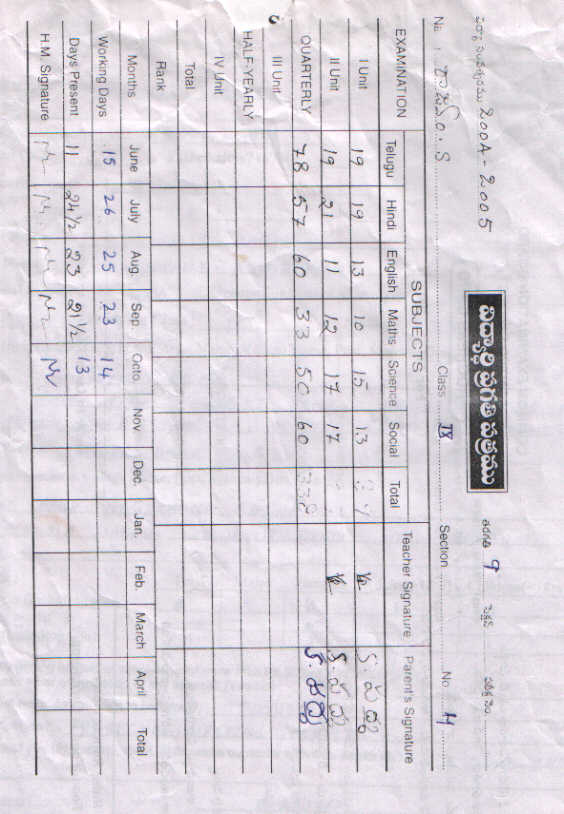 విద్యా సంవత్సరము 2004-2005 విద్యార్థి ప్రగతి పత్రము తరగతి 9 సెక్షన్
Class IX Section No 4
EXAMINATION SUBJECTS Teacher Signature Parent's Signature
Telugu Hindi English Maths Science Social Total
I Unit 19 19 13 10 15 13
II Unit 19 21 11 12 17 17
QUARTERLY 78 57 60 33 50 60 338
III Unit
HALF-YEARLY
IV Unit
Total
Rank
Months June July Aug. Sep. Octo. Nov Dec. Jan. Feb. March April Total
Working Days 15 26 25 23 14
Days Present 11 24 1/2 23 21 1/2 13
H.M. Signature